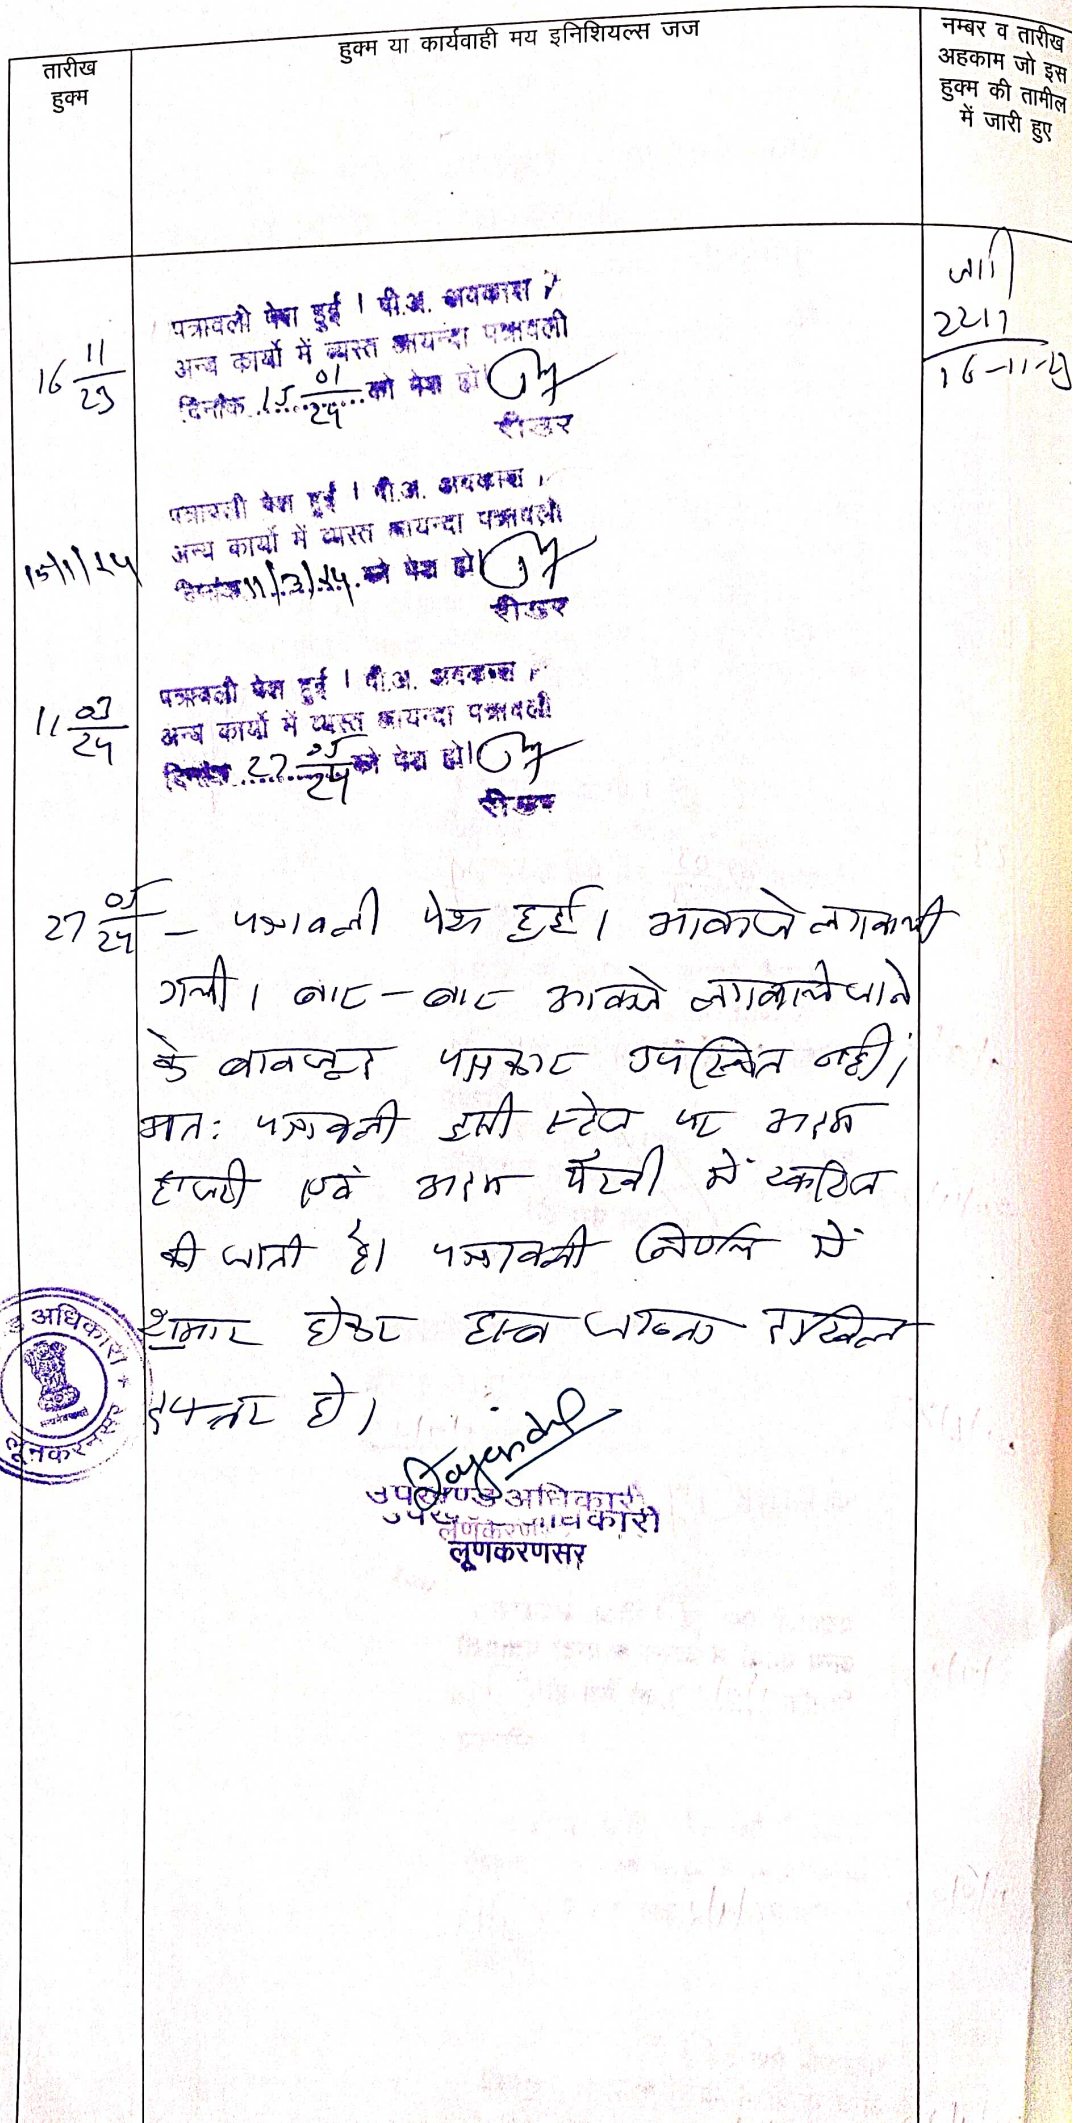 तारीख
हुक्म
हुक्म या कार्यवाही मय इनिशियल्स जज
नम्बर व तारीख
अहकाम जो इस
हुक्म की तामील
में जारी हुए
2217
16-11-23
16 11/23
पत्रावली पेश हुई । पी.अ. अवकाश
अन्य कार्यो में व्यस्त आयन्दा पत्रावली
दिनांक 15 01/24 को पेश हो।
रीडर
15/1/24
पत्रावली पेश हुई । पी.अ. अवकाश
अन्य कार्यो में व्यस्त आयन्दा पत्रावली
दिनांक 11/3/24 को पेश हो।
रीडर
11 03/24
पत्रावली पेश हुई । पी.अ. अवकाश
अन्य कार्यो में व्यस्त आयन्दा पत्रावली
दिनांक 27 05/24 को पेश हो।
रीडर
27 05/24 – पत्रावली पेश हुई। आवाजे लगवायी
गयी। बार-बार आवाजे लगवाये जाने
के बावजूद पक्षकार उपस्थित नहीं।
अतः पत्रावली इसी स्टेज पर अदम
हाजरी एवं अदम पैरवी में खारिज
की जाती है। पत्रावली निर्णित में
शुमार होकर बाद जाब्ता दाखिल
दफ्तर हो।
अधिकारी
लूनकरनसर
उपखण्ड अधिकारी
लूणकरणसर